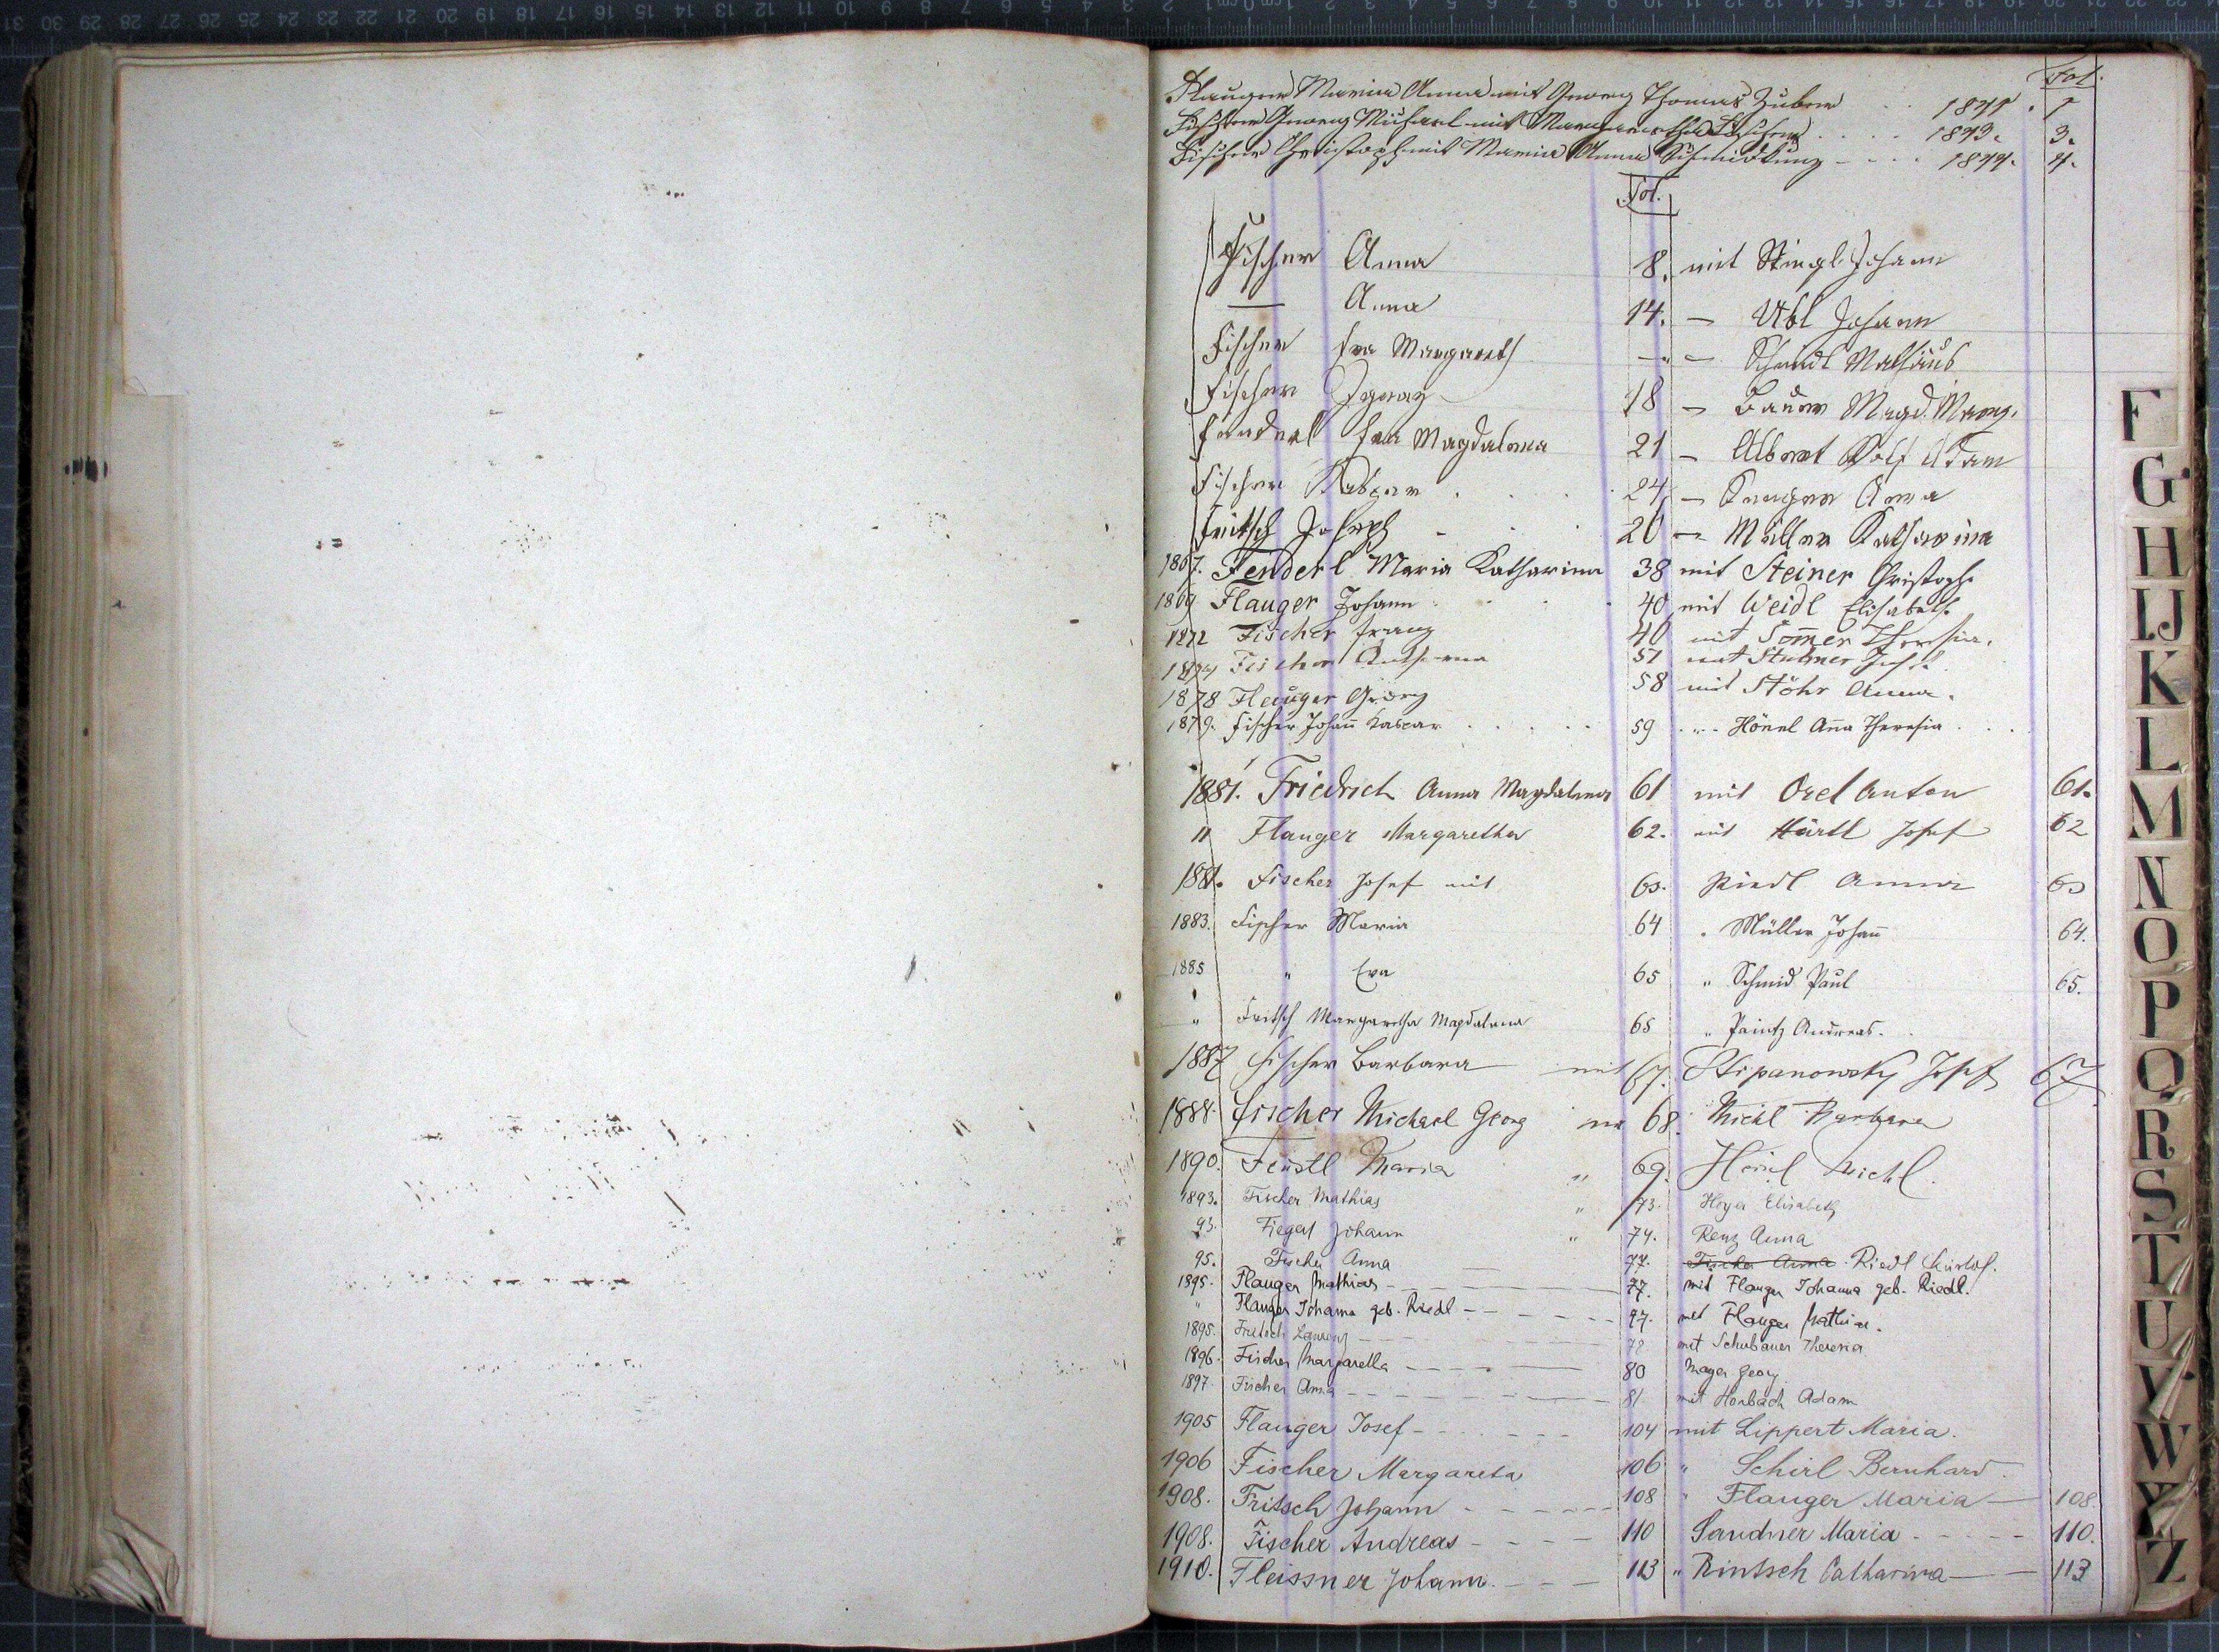 Fol.
Flauger Maria Anna mit Georg Thomas Huber . . 1841 . 1
Fischer Georg Michael mit Margaretha Fischer . . . . 1843. 3.
Fischer Christoph mit Maria Anna Schmidkunz - - . . 1844. 4.
Fol.
Fischer Anna 8. mit Stingl Johann
— Anna 14. — Ubl Johann
Fischer Eva Margareth — " — Schmidl Mathäus
Fischer Ignaz 18 — Bauer Magd. Marg.
Fenderl Eva Magdalena 21 — Albert Wolf Adam
Fischer Kaspar . . . . 24 — Anna
Fritsch Joseph - . . 26 — Müller Katharina
1867. Fenderl Maria Katharina 38 mit Steiner Christoph
1869 Flauger Johann . . . 40 mit Weidl Elisabeth
1872 Fischer Franz 46 mit Som̄er Theresia.
1874 Fischer 51 mit
1878 Flauger Georg 58 mit Stöhr Anna.
1879. Fischer Johan̄ Kaspar . . . . . 59 . " . Hönnl An̄a Theresia . . .
1881. Friedrich Anna Magdalena 61 mit Oxel Anton 61.
" Flauger Margaretha 62. mit Härtl Josef 62
1881. Fischer Josef mit 63. Riedl Anna 63
1883. Fischer Maria 64 . Müller Johan̄ 64.
1885 " Eva 65 " Schmid Paul 65.
" Fritsch Margaretha Magdalena 65 " Paintz Andreas. .
1887 Fischer Barbara mit 67. Stipanowsky Josef 67
1888. Fischer Michael Georg m 68. Michl Barbara
1890. Feustl Maria " 69. Heinl Michl.
1893. Fischer Mathias " 73. Hoyer Elisabeth
93. Fiegert Johann " 74. Renz Anna
95. Fischer Anna — 77. Fischer Anna Riedl
1895. Flauger Mathias - — — — 77. mit Flauger Johanna geb. Riedl.
" Flauger Johanna geb. Riedl - - — - - - 77. mit Flauger Mathias.
1895. Fritsch Laurenz — — — 78 mit Schubauer Theresia
1896. Fischer Margaretta — — — — 80 Mayer Georg.
1897. Fischer Anna — — — — — 81 mit Horbach Adam
1905 Flauger Josef - - - - - - - 104 mit Lippert Maria.
1906 Fischer Margareta 106 " Schirl Bernhard.
1908. Fritsch Johann - - - - - 108 " Flauger Maria — 108.
1908. Fischer Andreas - - - - 110 Sandner Maria - - - - 110.
1910. Fleissner Johann. - - — 113 " Rintsch Catharina — — 113
F
G
H
I.J
K
L
M
N
O
P
Q
R
S
T
U
V
W
Y
Z